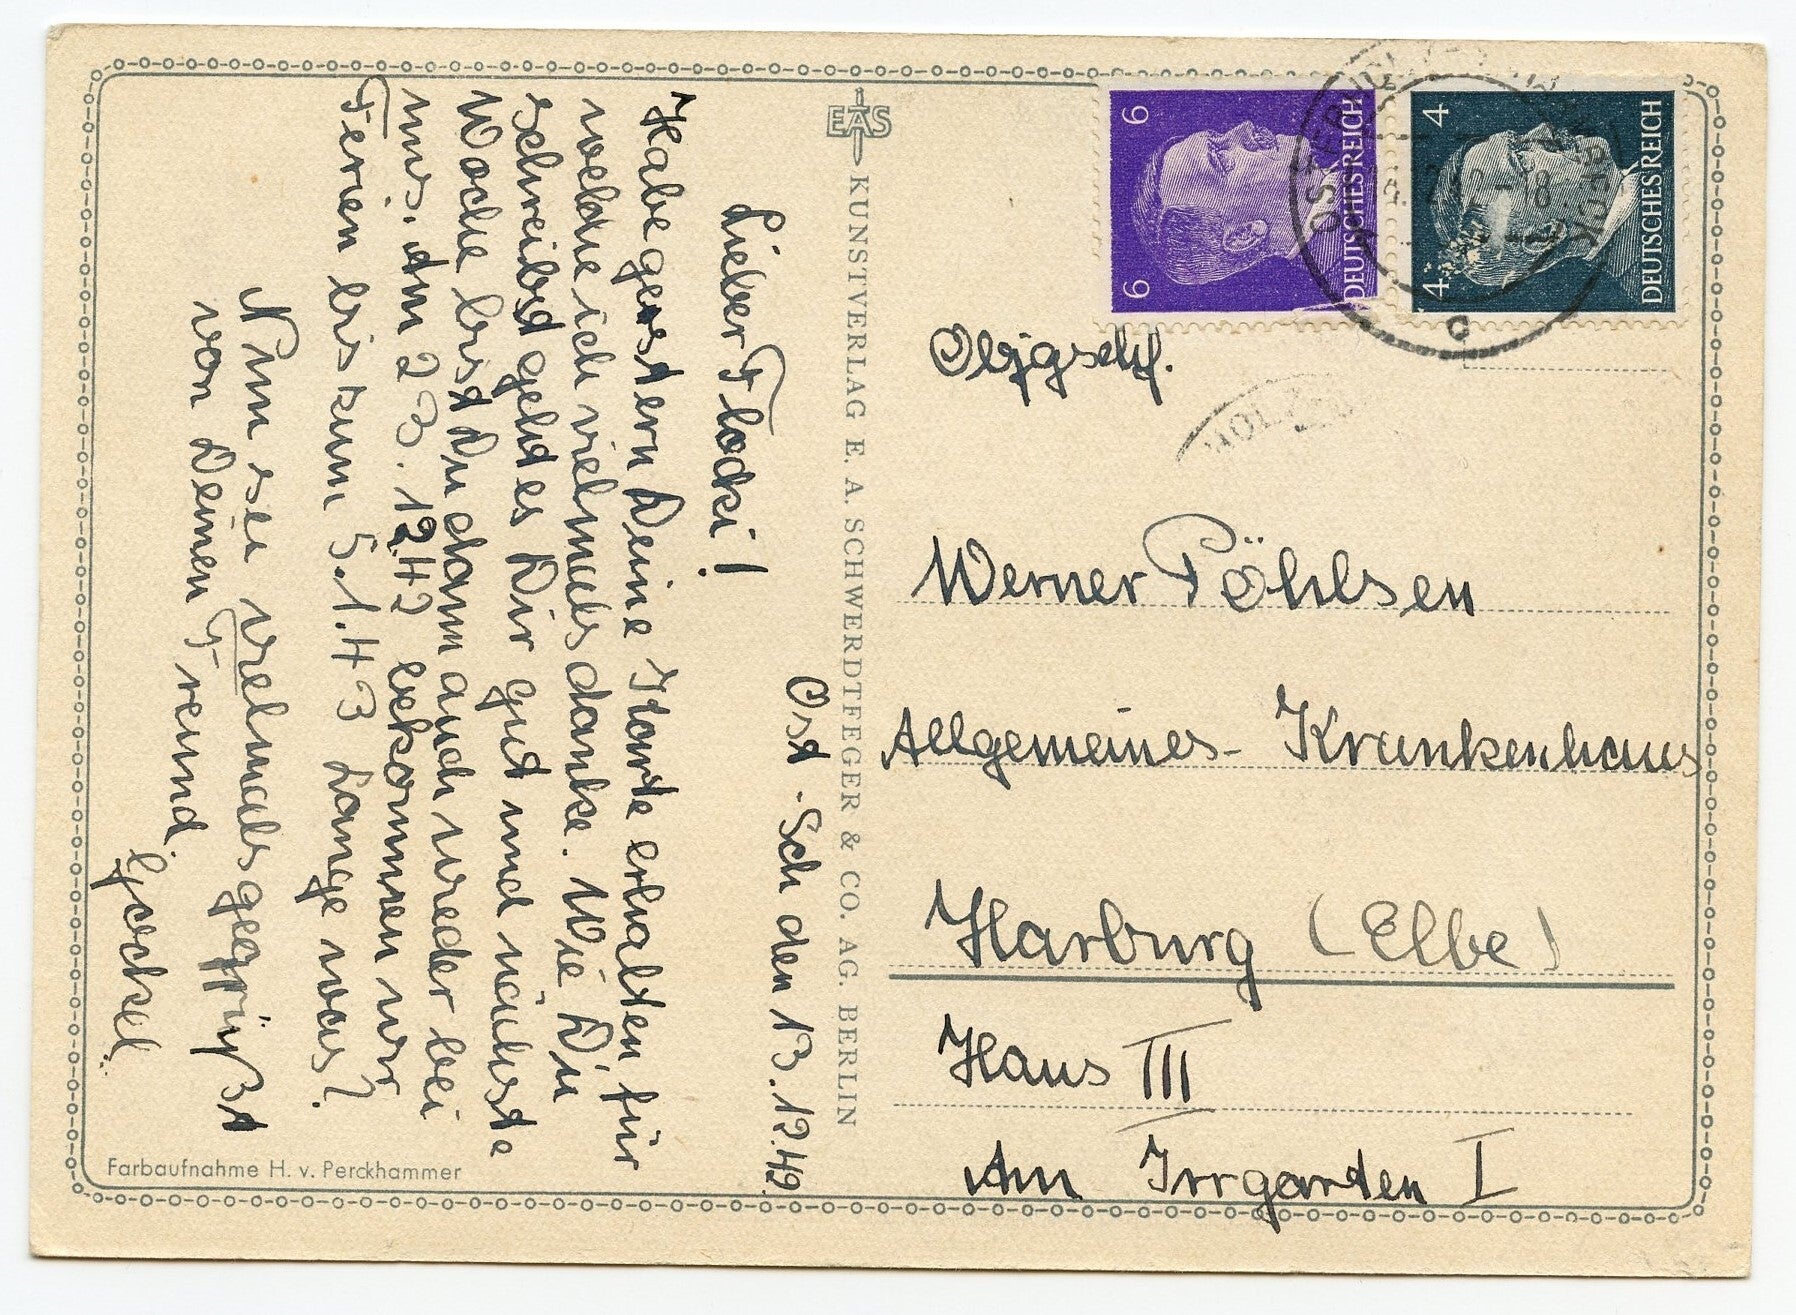 Ost.-Sch den 13.12.42.
Lieber Flocki!
Habe gestern Deine Karte erhalten für
welche ich vielmals danke. Wie Du
schreibst geht es Dir gut und nächste
Woche bist Du dann auch wieder bei
uns. Am 23.12.42 bekommen wir
Ferien bis zum 5.1.43 Lange was?
Nun sei vielmals gegrüßt
von Deinen Freund.
Farbaufnahme H. v. Perckhammer
EAS
KUNSTVERLAG E. A. SCHWERDTFEGER & CO. AG. BERLIN
6 6
DEUTSCHES REICH
4 4
DEUTSCHES REICH
c
Werner Pöhlsen
Allgemeines-Krankenhaus
Harburg (Elbe)
Haus III
Am Irrgarten I